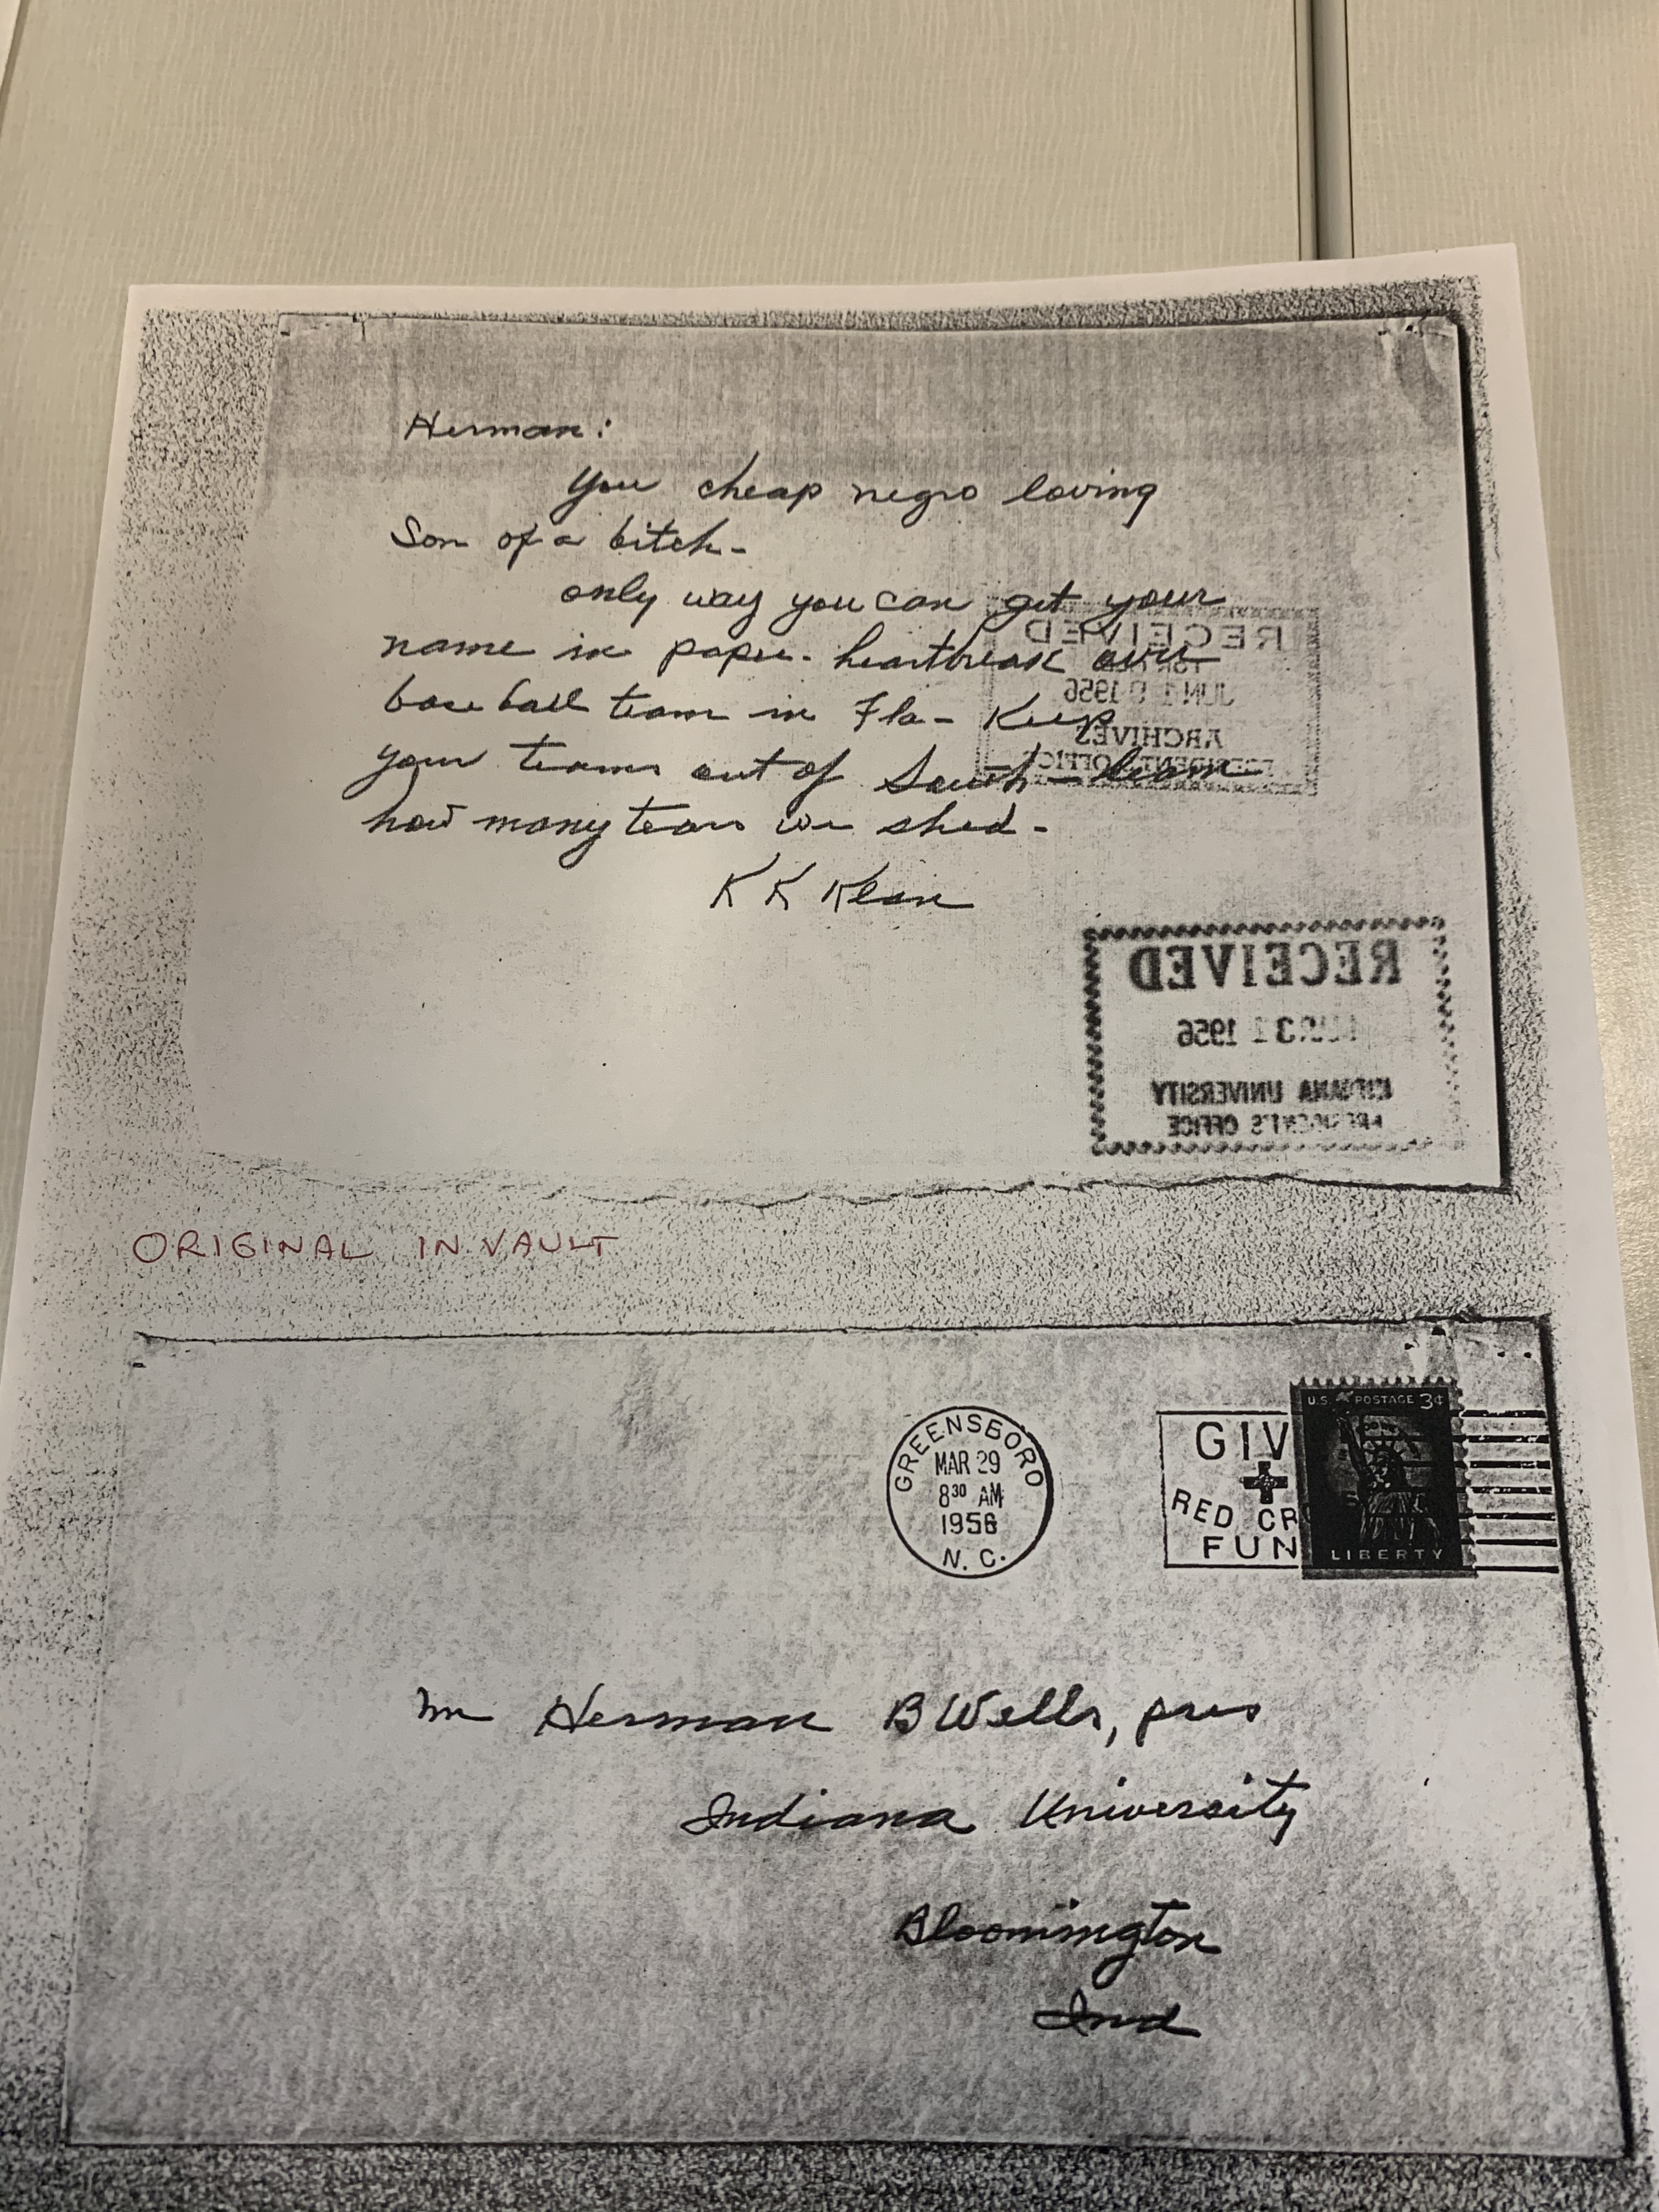 Herman:
You cheap negro loving
Son of a bitch-
only way you can get your
name in paper. heartbreak over
baseball team in Fla- Keep
your teams out of South - learn
how many tears we shed-
K K Klan
RECEIVED
JUN 1 1956
ARCHIVES
PRESIDENT'S OFFICE
RECEIVED
1956
INDIANA UNIVERSITY
PRESIDENT'S OFFICE
ORIGINAL IN VAULT
GREENSBORO
MAR 29
8 30 AM
1956
N. C.
GIV
RED CR
FUN
U.S. POSTAGE 3¢
LIBERTY
Mr Herman B Wells, pres
Indiana University
Bloomington
Ind